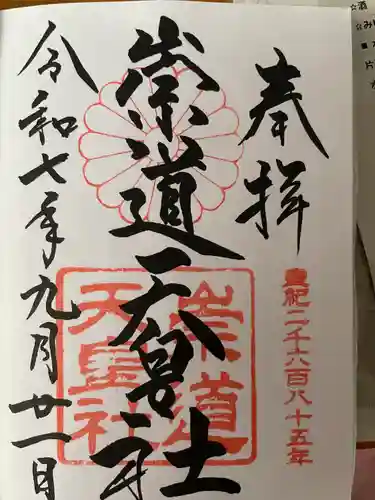 奉拝
皇紀二千六百八十五年
崇道天皇社
崇道
天皇社
令和七年九月廿一日